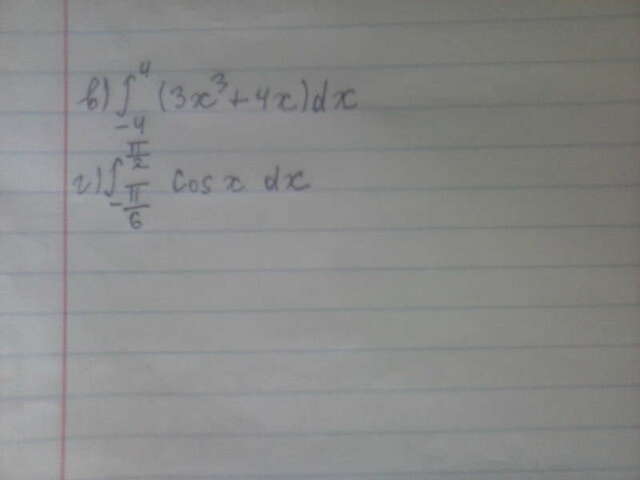 в) ∫_{-4}^{4} (3x³+4x)dx
г) ∫_{-π/6}^{π/2} cos x dx